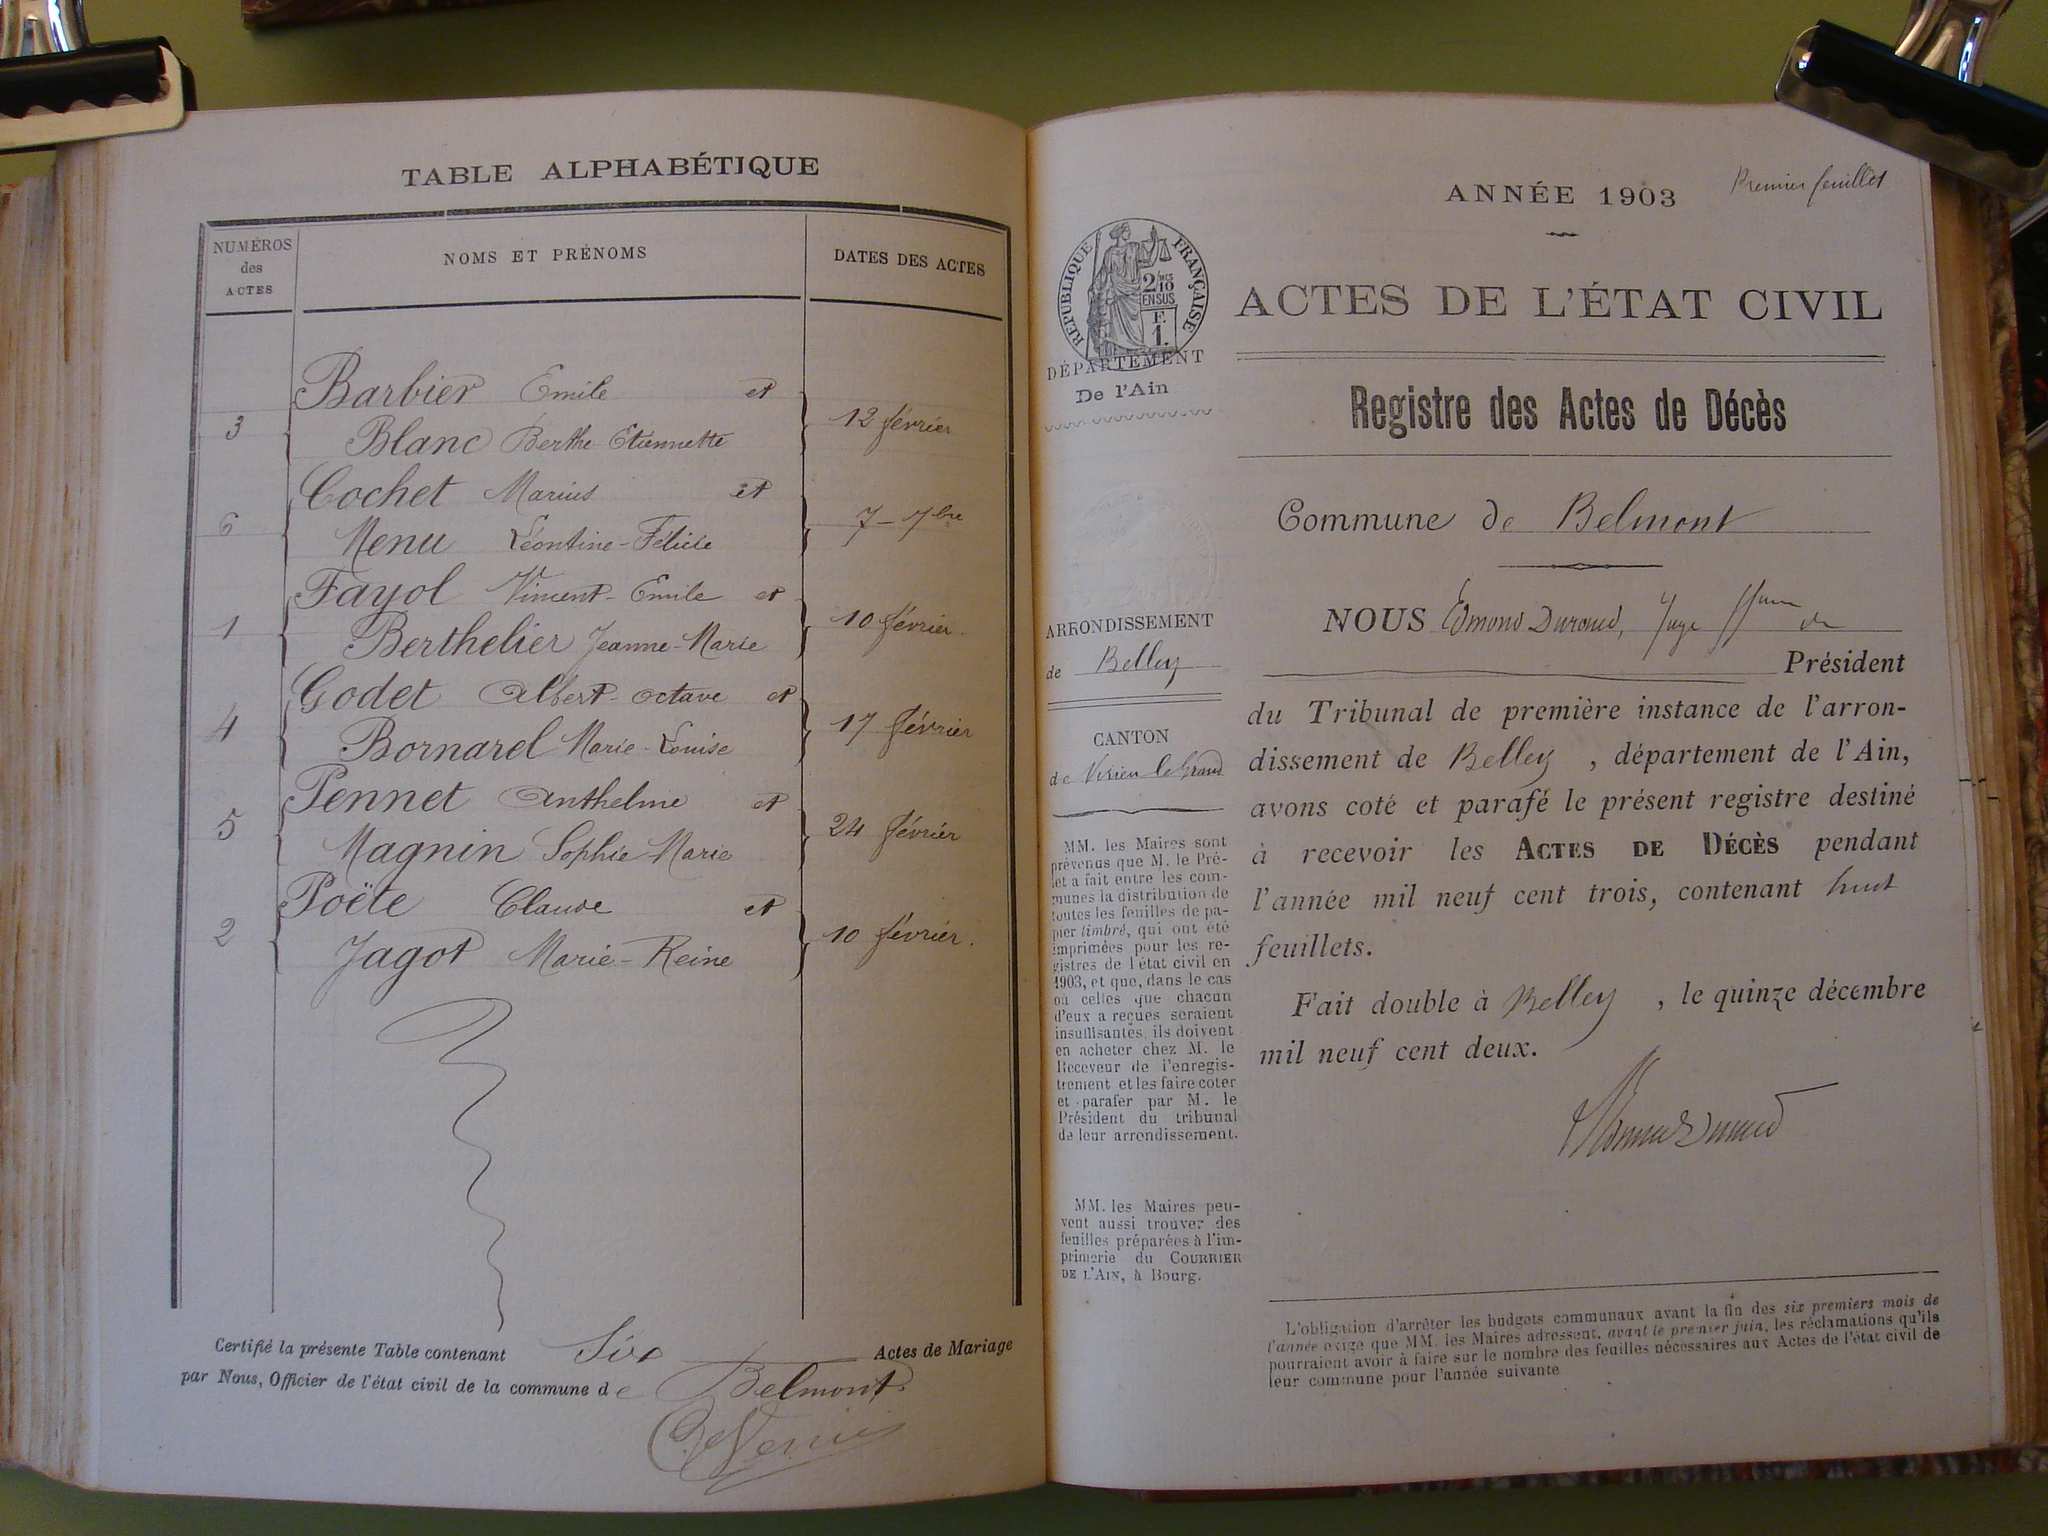 TABLE ALPHABÉTIQUE
NUMÉROS
des
ACTES
NOMS ET PRÉNOMS
DATES DES ACTES
Barbier Emile et
3
12 février
Blanc Berthe-Etiennette
Cochet Marius et
6
7 - 7bre
Menu Léontine-Félicie
Fayol Vincent-Emile et
1
10 février.
Berthelier Jeanne-Marie
Godet Albert-Octave et
4
17 février
Bornarel Marie-Louise
Pennet Anthelme et
5
24 février
Magnin Sophie Marie
Poëte Claude et
2
10 février.
Jagot Marie-Reine
Certifié la présente Table contenant Six Actes de Mariage
par Nous, Officier de l'état civil de la commune de Belmont.
Premier feuillet
ANNÉE 1903
RÉPUBLIQUE FRANÇAISE
2/10
EN SUS
F.
1.
DÉPARTEMENT
De l'Ain
ACTES DE L'ÉTAT CIVIL
Registre des Actes de Décès
Commune de Belmont
ARRONDISSEMENT
de Belley
CANTON
de Virieu le Grand
MM. les Maires sont
prévenus que M. le Pré-
fet a fait entre les com-
munes la distribution de
toutes les feuilles de pa-
pier timbré, qui ont été
imprimées pour les re-
gistres de l'état civil en
1903, et que, dans le cas
où celles que chacun
d'eux a reçues seraient
insuffisantes, ils doivent
en acheter chez M. le
Receveur de l'enregis-
trement et les faire coter
et parafer par M. le
Président du tribunal
de leur arrondissement.
MM. les Maires peu-
vent aussi trouver des
feuilles préparées à l'im-
primerie du COURRIER
DE L'AIN, à Bourg.
NOUS Edmond Durand, Juge de
Président
du Tribunal de première instance de l'arron-
dissement de Belley, département de l'Ain,
avons coté et parafé le présent registre destiné
à recevoir les ACTES DE DÉCÈS pendant
l'année mil neuf cent trois, contenant huit
feuillets.
Fait double à Belley, le quinze décembre
mil neuf cent deux.
L'obligation d'arrêter les budgets communaux avant la fin des six premiers mois de
l'année exige que MM. les Maires adressent, avant le premier juin, les réclamations qu'ils
pourraient avoir à faire sur le nombre des feuilles nécessaires aux Actes de l'état civil de
leur commune pour l'année suivante